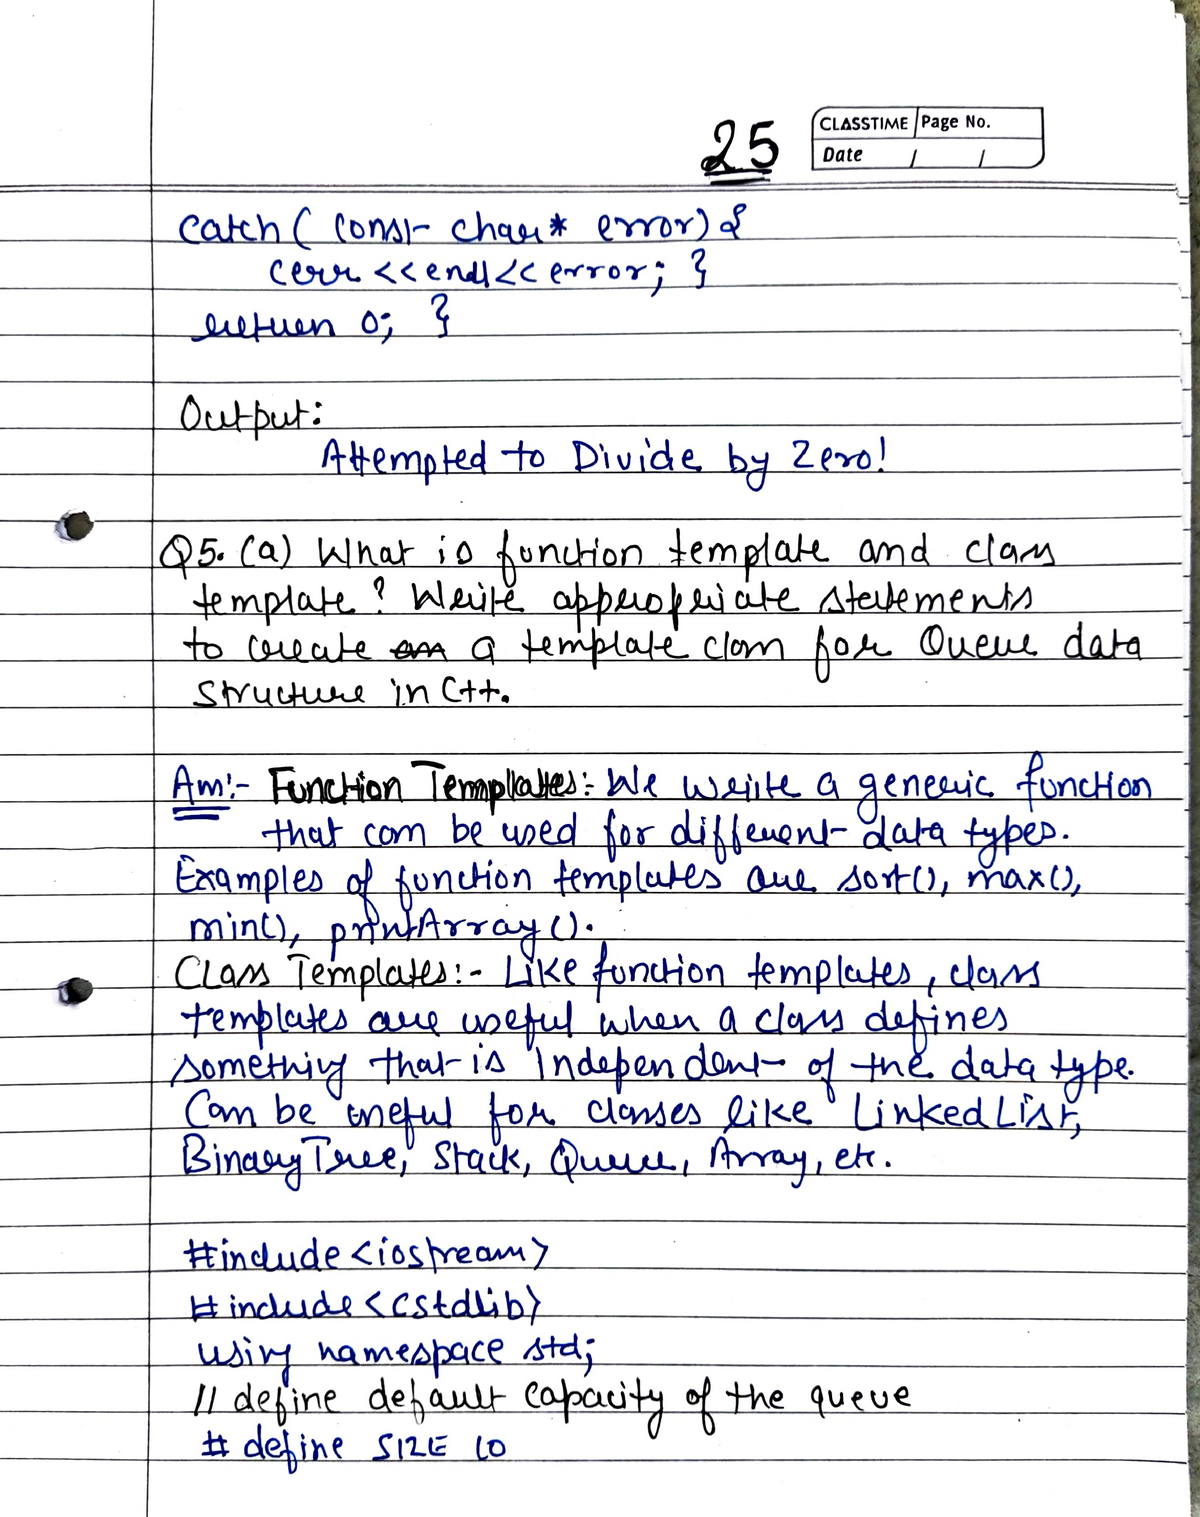 25
CLASSTIME Page No.
Date / /
catch ( const char* error) {
cerr <<endl<< error; }
return 0; }
Output:
Attempted to Divide by Zero!
Q5. (a) What is function template and class
template? Write appropriate statements
to create a template class for Queue data
structure in C++.
Ans:- Function Templates: We write a generic function
that can be used for different data types.
Examples of function templates are sort(), max(),
min(), printArray().
Class Templates:- Like function templates, class
templates are useful when a class defines
something that is Independent of the data type.
Can be useful for classes like LinkedList,
BinaryTree, Stack, Queue, Array, etc.
#include <iostream>
#include <cstdlib>
using namespace std;
// define default capacity of the queue
# define SIZE 10